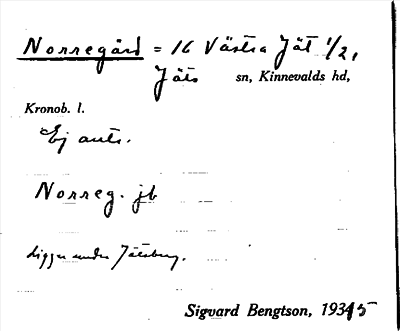 Norregård = 16 Västra Jät 1/2,
Jäts sn, Kinnevalds hd,
Kronob. l.
Ej antr.
Norreg. jb
Ligger under Jätsberg.
Sigvard Bengtson, 1935